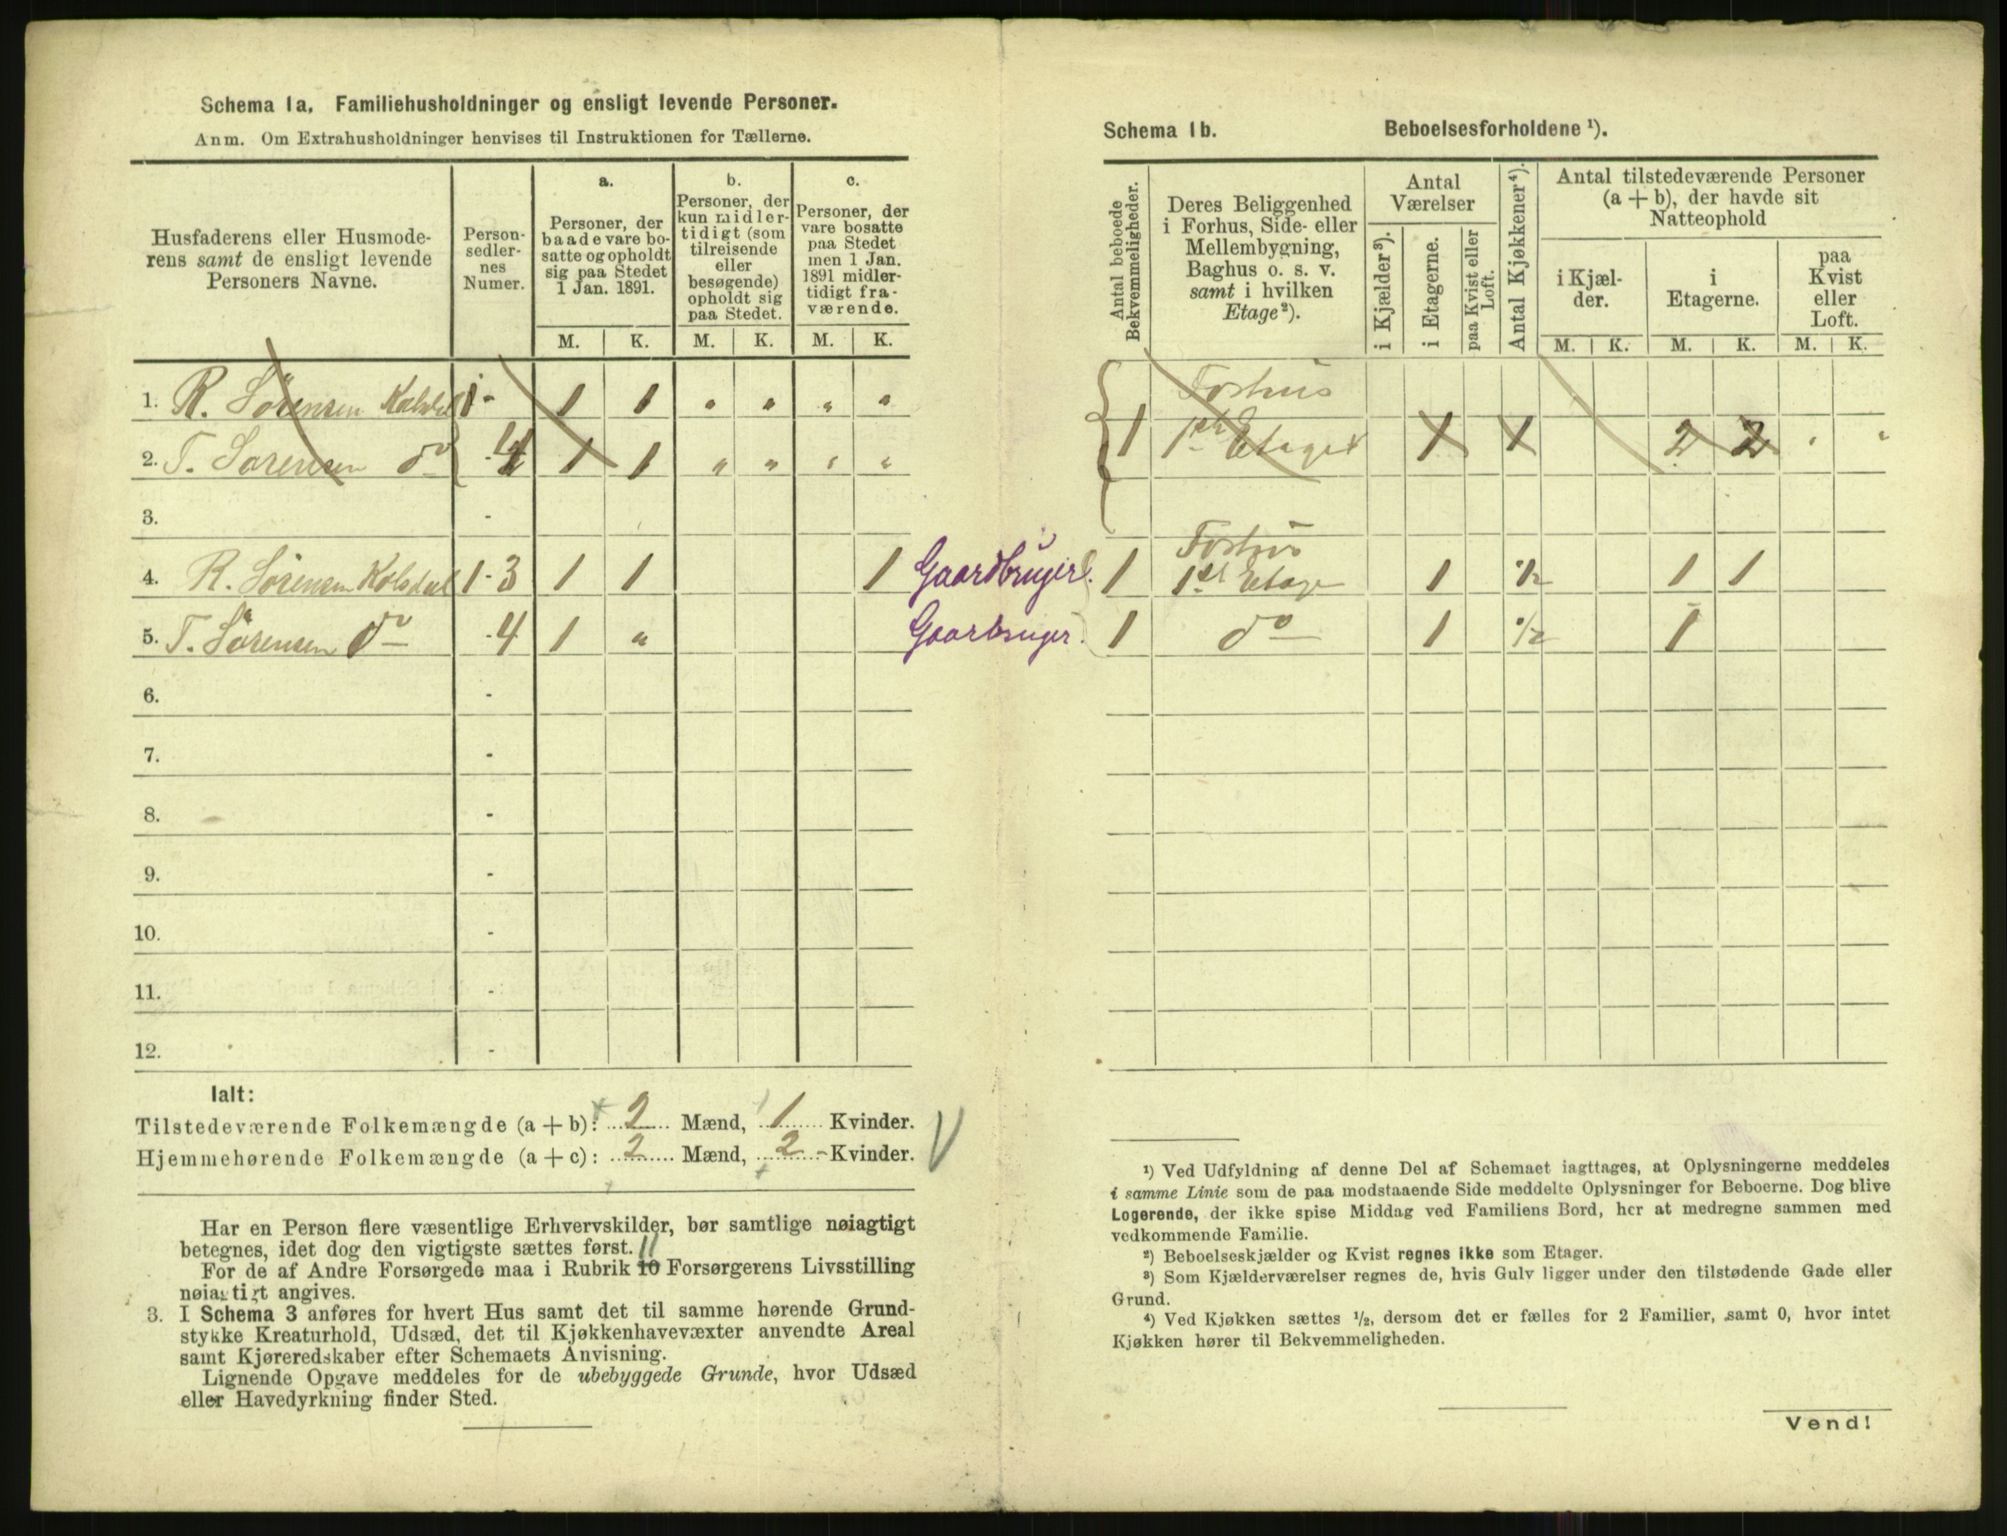 Schema 1a. Familiehusholdninger og ensligt levende Personer.
Anm. Om Extrahusholdninger henvises til Instruktionen for Tællerne.
Husfaderens eller Husmode-
rens samt de ensligt levende
Personers Navne.
Person-
sedler-
nes
Numer.
a.
Personer, der
baade vare bo-
satte og opholdt
sig paa Stedet
1 Jan. 1891.
b.
Personer, der
kun midler-
tidigt (som
tilreisende
eller
besøgende)
opholdt sig
paa Stedet.
c.
Personer, der
vare bosatte
paa Stedet
men 1 Jan.
1891 midler-
tidigt fra-
værende.
M. K. M. K. M. K.
1. R. Sörensen Kolsdal 1 - 1 1 " " " "
2. T. Sörensen do - 4 1 1 " " " "
3. -
4. R. Sörensen Kolsdal 1-3 1 1 1 Gaardbruger.
5. T. Sörensen do -4 1 " Gaarbruger.
6. -
7. -
8. -
9. -
10. -
11. -
12. -
Ialt:
Tilstedeværende Folkemængde (a + b): 2 Mænd, 1 Kvinder.
Hjemmehørende Folkemængde (a + c): 2 Mænd, 2 Kvinder.
Har en Person flere væsentlige Erhvervskilder, bør samtlige nøiagtigt
betegnes, idet dog den vigtigste sættes først.
11
For de af Andre Forsørgede maa i Rubrik 10 Forsørgerens Livsstilling
nøiagtigt angives.
3. I Schema 3 anføres for hvert Hus samt det til samme hørende Grund-
stykke Kreaturhold, Udsæd, det til Kjøkkenhavevæxter anvendte Areal
samt Kjøreredskaber efter Schemaets Anvisning.
Lignende Opgave meddeles for de ubebyggede Grunde, hvor Udsæd
eller Havedyrkning finder Sted.
Schema 1b. Beboelsesforholdene ¹).
Antal beboede
Bekvemmeligheder.
Deres Beliggenhed
i Forhus, Side- eller
Mellembygning,
Baghus o. s. v.
samt i hvilken
Etage²).
Antal
Værelser
i Kjælder³).
i Etagerne.
paa Kvist eller
Loft.
Antal Kjøkkener⁴).
Antal tilstedeværende Personer
(a + b), der havde sit
Natteophold
i Kjæl-
der.
i
Etagerne.
paa
Kvist
eller
Loft.
M. K. M. K. M. K.
Forhus
1 1ste Etage 1 1 2 2 " "
Forhus
1 1ste Etage 1 1/2 1 1
1 do 1 1/2 1
¹) Ved Udfyldning af denne Del af Schemaet iagttages, at Oplysningerne meddeles
i samme Linie som de paa modstaaende Side meddelte Oplysninger for Beboerne. Dog blive
Logerende, der ikke spise Middag ved Familiens Bord, her at medregne sammen med
vedkommende Familie.
²) Beboelseskjælder og Kvist regnes ikke som Etager.
³) Som Kjælderværelser regnes de, hvis Gulv ligger under den tilstødende Gade eller
Grund.
⁴) Ved Kjøkken sættes ½, dersom det er fælles for 2 Familier, samt 0, hvor intet
Kjøkken hører til Bekvemmeligheden.
Vend!